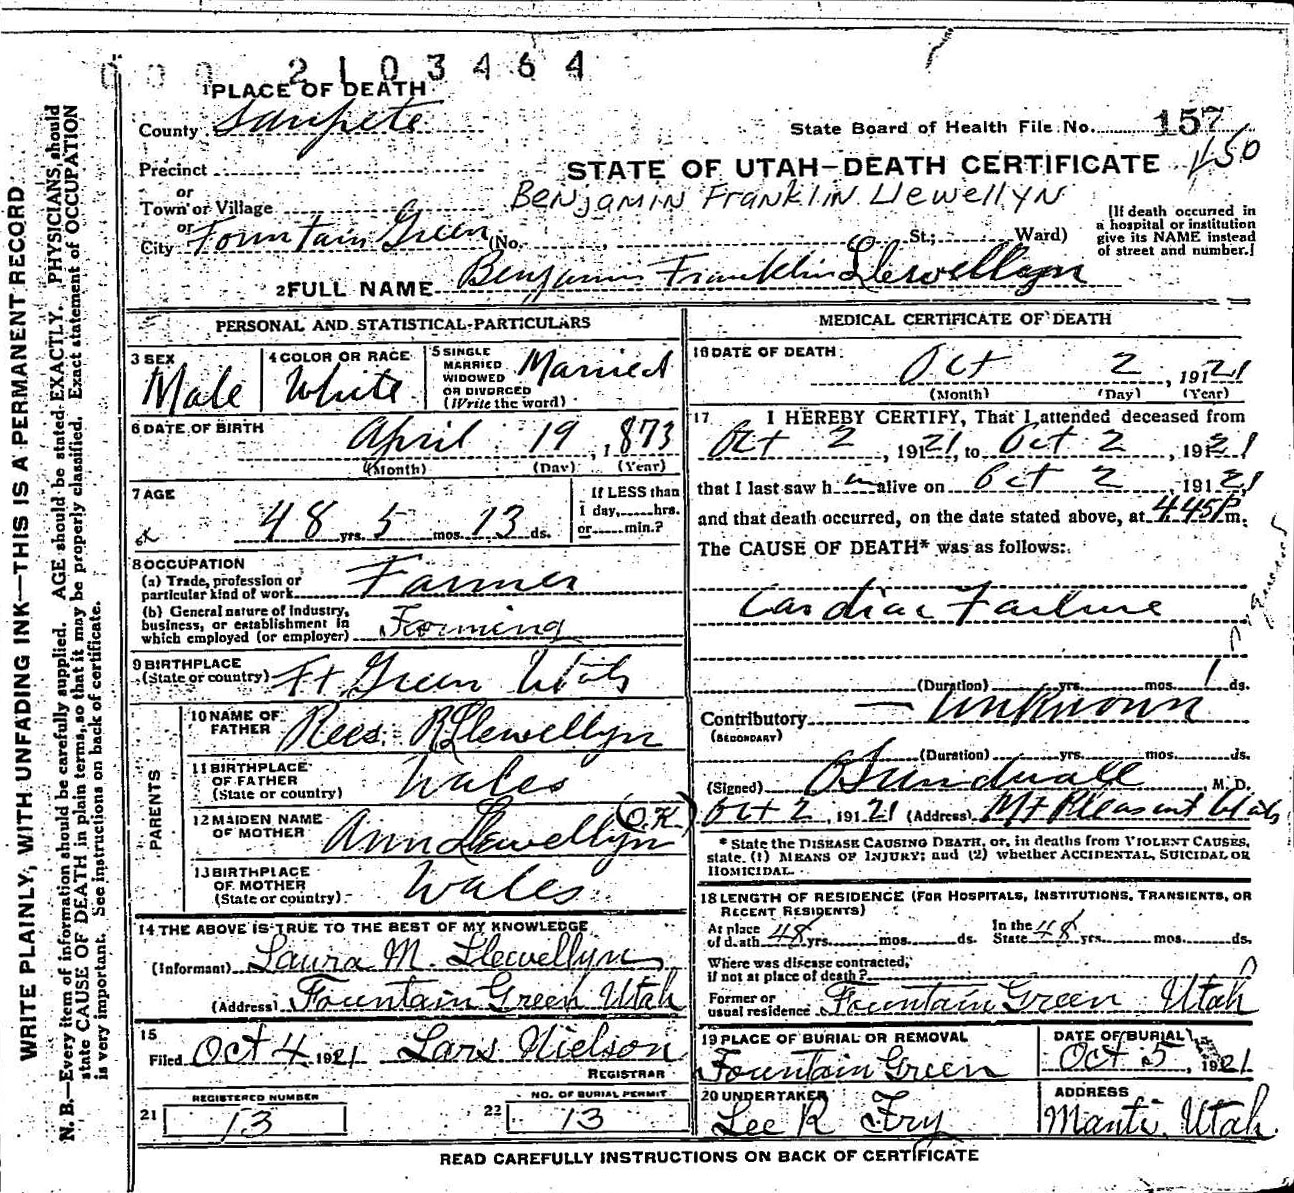 2103464
1 PLACE OF DEATH
County Sanpete
State Board of Health File No. 157
450
Precinct
STATE OF UTAH—DEATH CERTIFICATE
or
Town or Village
Benjamin Franklin Llewellyn
or
City Fountain Green (No. , St.; Ward)
(If death occurred in a hospital or institution give its NAME instead of street and number.)
2 FULL NAME Benjamin Franklin Llewellyn
PERSONAL AND STATISTICAL PARTICULARS
3 SEX Male
4 COLOR OR RACE White
5 SINGLE MARRIED WIDOWED OR DIVORCED (Write the word) Married
6 DATE OF BIRTH April 19, 1873
(Month) (Day) (Year)
7 AGE 48 yrs. 5 mos. 13 ds.
If LESS than 1 day, hrs. or min.?
8 OCCUPATION
(a) Trade, profession or particular kind of work Farmer
(b) General nature of industry, business, or establishment in which employed (or employer) Farming
9 BIRTHPLACE (State or country) Ft Green Utah
PARENTS
10 NAME OF FATHER Rees R Llewellyn
11 BIRTHPLACE OF FATHER (State or country) Wales
12 MAIDEN NAME OF MOTHER Ann Llewellyn (O.K.)
13 BIRTHPLACE OF MOTHER (State or country) Wales
14 THE ABOVE IS TRUE TO THE BEST OF MY KNOWLEDGE
(Informant) Laura M. Llewellyn
(Address) Fountain Green Utah
15 Filed Oct 4 1921 Lars Nielson
REGISTRAR
21 REGISTERED NUMBER 13
22 NO. OF BURIAL PERMIT 13
MEDICAL CERTIFICATE OF DEATH
16 DATE OF DEATH Oct 2, 1921
(Month) (Day) (Year)
17 I HEREBY CERTIFY, That I attended deceased from
Oct 2, 1921, to Oct 2, 1921
that I last saw him alive on Oct 2 1921
and that death occurred, on the date stated above, at 4.45 P m.
The CAUSE OF DEATH* was as follows:
Cardiac Failure
(Duration) yrs. mos. 1 ds.
Contributory — Unknown
(SECONDARY)
(Duration) yrs. mos. ds.
(Signed) O Sundwall M. D.
Oct 2, 1921 (Address) Mt Pleasant Utah
* State the DISEASE CAUSING DEATH, or, in deaths from VIOLENT CAUSES, state (1) MEANS OF INJURY; and (2) whether ACCIDENTAL, SUICIDAL OR HOMICIDAL.
18 LENGTH OF RESIDENCE (FOR HOSPITALS, INSTITUTIONS, TRANSIENTS, OR RECENT RESIDENTS)
At place of death 48 yrs. mos. ds. In the State 48 yrs. mos. ds.
Where was disease contracted, if not at place of death?
Former or usual residence Fountain Green Utah
19 PLACE OF BURIAL OR REMOVAL Fountain Green
DATE OF BURIAL Oct 5, 1921
20 UNDERTAKER Lee R Fry
ADDRESS Manti, Utah
READ CAREFULLY INSTRUCTIONS ON BACK OF CERTIFICATE
WRITE PLAINLY, WITH UNFADING INK—THIS IS A PERMANENT RECORD
N. B.—Every item of information should be carefully supplied. AGE should be stated EXACTLY. PHYSICIANS should
state CAUSE OF DEATH in plain terms, so that it may be properly classified. Exact statement of OCCUPATION
is very important. See instructions on back of certificate.